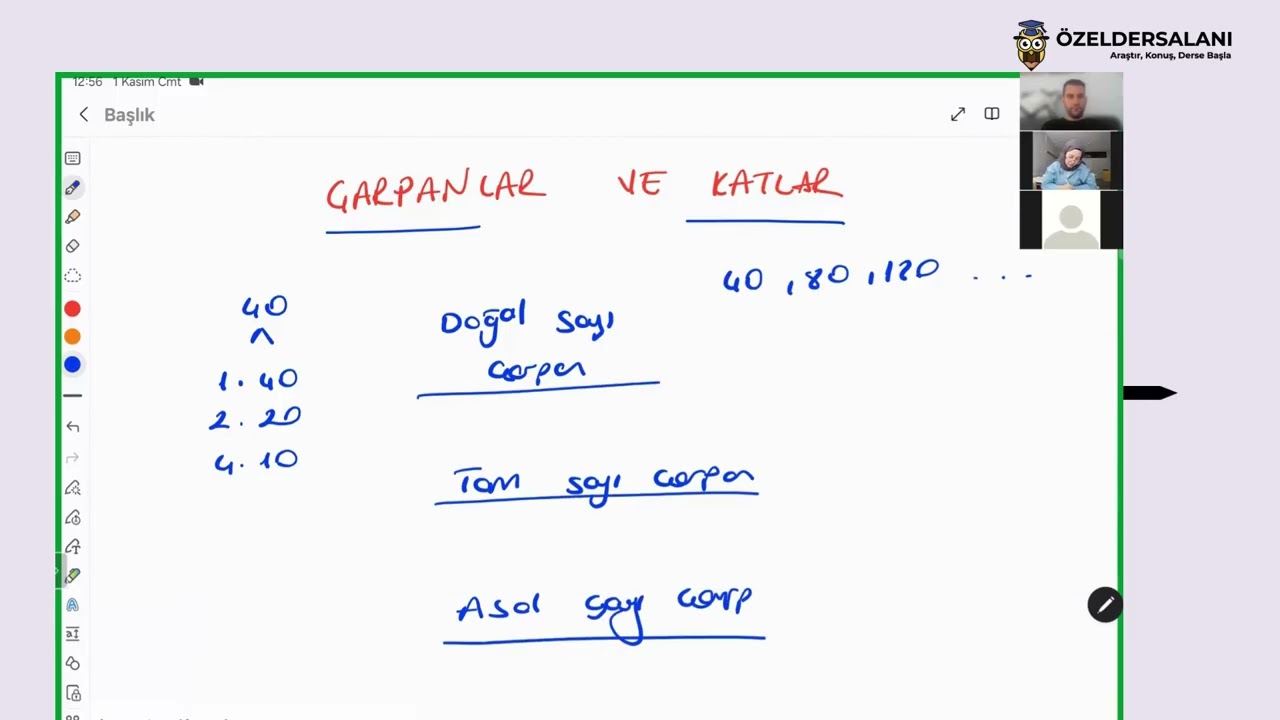 ÖZELDERSALANI
Araştır, Konuş, Derse Başla
12:56 1 Kasım Cmt
Başlık
ÇARPANLAR VE KATLAR
40, 80, 120 ...
40
1. 40
2. 20
4. 10
Doğal sayı
çarpan
Tam sayı çarpan
Asal sayı çarp